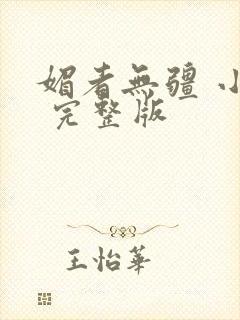 媚者無疆 小
完整版
王怡華